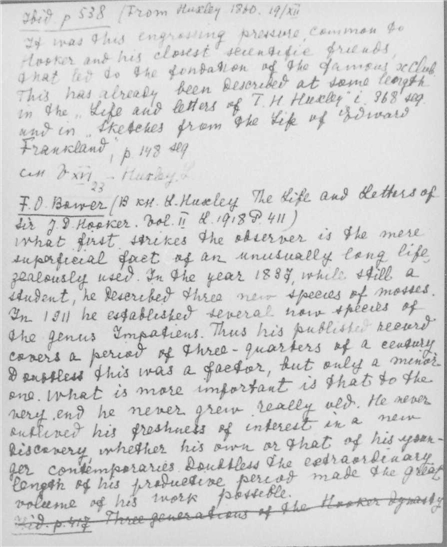 Ibid p 538 (From Huxley 1860. 19/XII
It was this engrossing pressure, common to
Hooker and his closest scientific friends,
that led to the fondation of the famous x Club
This has already been described at some length
in the „Life and letters of T. H. Huxley" i. 368 seq
und in „Sketches from the Life of Edward
Frankland", p 148 seq
см XVI - Huxley L
23
F. O. Bower (В кн. L. Huxley The Life and Letters of
Sir J. D Hooker. Vol. II L. 1918 P 411)
What first strikes the observer is the mere
superficial fact of an unusually long life,
zealously used. In the year 1837, while still a
student, he described three new species of mosses.
In 1911 he established several now species of
the genus Impatiens. Thus his published record
covers a period of three-quarters of a century
Doubtless this was a factor, but only a minor
one. What is more important is that to the
very end he never grew really old. He never
outlived his freshness of interest in a new
discovery, whether his own or that of his youn-
ger contemporaries Doubtless the extraordinary
length of his productive period made the great
volume of his work possible.
Ibid. p. 417 Three generations of the Hooker dynasty